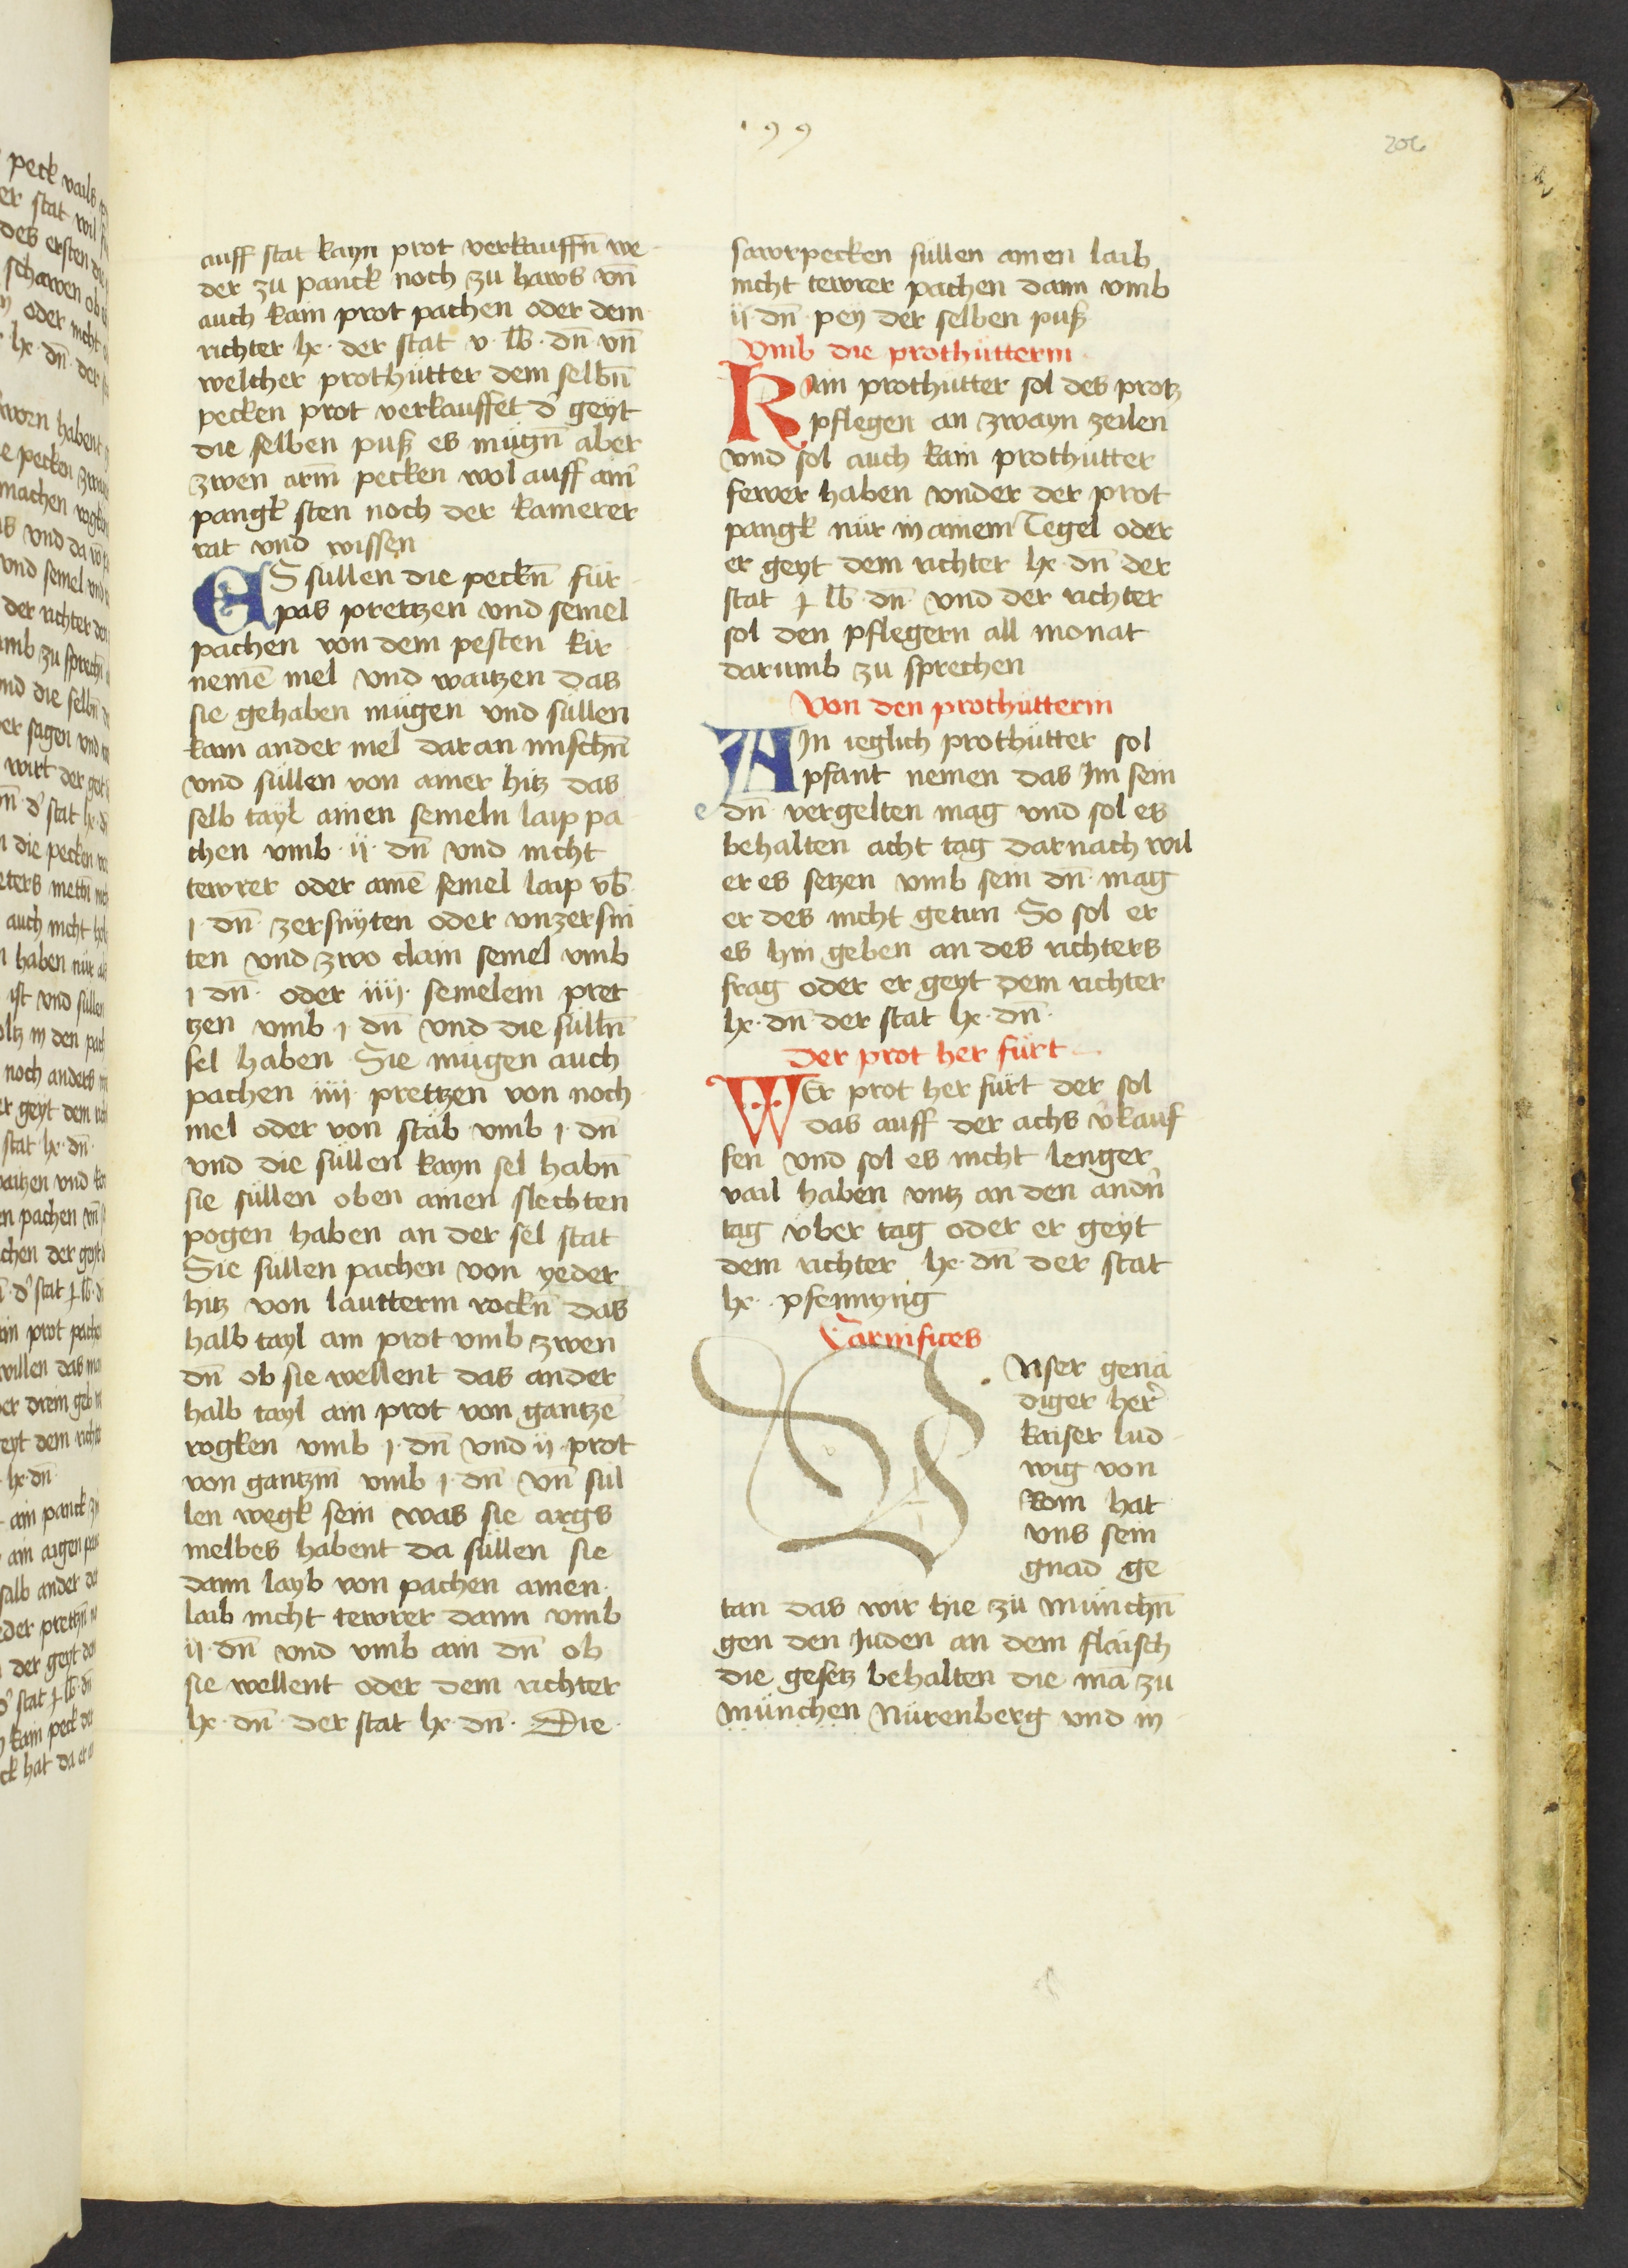 199
206
auff stat kayn prot verkauffn̄ we
der zu panck noch zu haws vn̄
auch kain prot pachen oder dem
richter lx · der stat v · lb · dn̄ vn̄
welcher prothütter dem selbn̄
pecken prot verkauffet d' geyt
die selben puß es mügn̄ aber
zwen arm̄ pecken wol auff ain̄
pangk sten noch der kamerer
rat vnd wissen
ES süllen die peckn̄ für
pas pretzen vnd semel
pachen von dem pesten kir
nemē mel vnd waitzen das
sie gehaben mügen vnd süllen
kain ander mel daran mischn̄
vnd süllen von ainer hitz das
selb tayl ainen semeln laip pa
chen vmb · ij · dn̄ vnd nicht
tewrer oder ainē semel laip vb̄
j · dn̄ · zersnyten oder vnzersni
ten vnd zwo clain semel vmb
j dn̄ · oder iiij · semelein pret
tzen vmb j dn̄ vnd die sülln̄
sel haben Sie mügen auch
pachen iiij pretzen von noch
mel oder von stäb vmb j · dn̄
vnd die süllen kayn sel habn̄
sie süllen oben ainen slechten
pogen haben an der sel stat
Sie süllen pachen von yeder
hitz von lautterm rockn̄ das
halb tayl ain prot vmb zwen
dn̄ ob sie wellent das ander
halb tayl ain prot von gantzē
rogken vmb j · dn̄ vnd ij · prot
von gantzm̄ vmb j · dn̄ vn̄ sül
len wegk sein was sie args
melbes habent da süllen sie
dann layb von pachen ainen
laib nicht tewrer dann vmb
ij · dn̄ vnd vmb ain dn̄ ob
sie wellent oder dem richter
lx · dn̄ · der stat lx · dn̄ · Die
sawrpecken süllen ainen laib
nicht tewrer pachen dann vmb
ij · dn̄ · pey der selben puß
Vmb die prothütterin
Kain prothütter sol des protz
pflegen an zwayn zeilen
vnd sol auch kain prothütter
fewer haben vnder der prot
pangk nür in ainem Tegel oder
er geyt dem richter lx · dn̄ der
stat j lb · dn̄ · vnd der richter
sol den pflegern all monat
darumb zu sprechen
Von den prothütterin
AIn ieglich prothütter sol
pfant nemen das Jm sein
dn̄ vergelten mag vnd sol es
behalten acht tag darnach wil
er es setzen vmb sein dn̄ mag
er des nicht getun So sol er
es hin geben an des richters
frag oder er geyt dem richter
lx · dn̄ der stat lx · dn̄ ·
Der prot her fürt
WEr prot her fürt der sol
das auff der achs v'kauf
fen vnd sol es nicht lenger
vail haben vntz an den andn̄
tag vber tag oder er geyt
dem richter lx · dn̄ der stat
lx · pfennyng
Carnifices
Vnser genä
diger her̄
kaiser lud
wig von
Rom hat
vns sein
gnad ge
tan das wir hie zü münchn̄
gen den Juden an dem flaisch
die gesetz behalten die mā zu
münchen Nürenberg vnd in